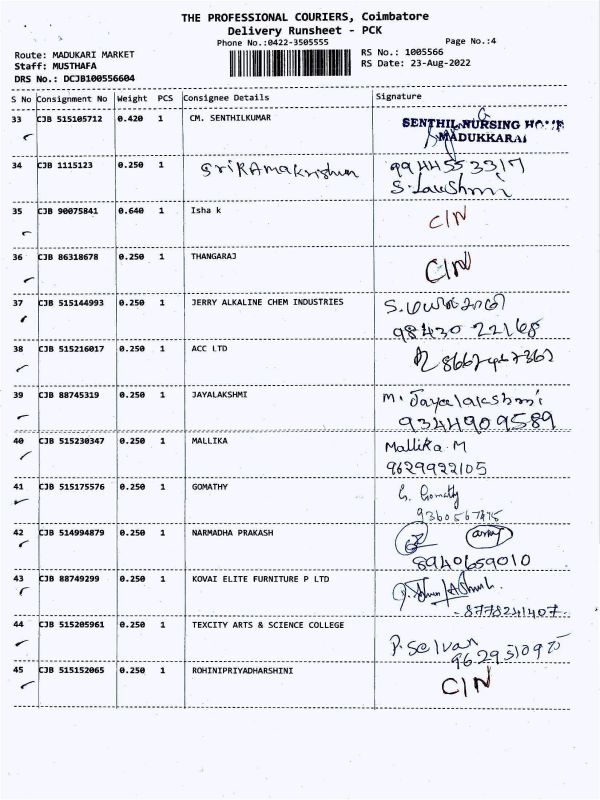 THE PROFESSIONAL COURIERS, Coimbatore
Delivery Runsheet - PCK
Phone No.:0422-3505555
Page No.:4
Route: MADUKARI MARKET
RS No.: 1005566
Staff: MUSTHAFA
RS Date: 23-Aug-2022
DRS No.: DCJB100556604
S No Consignment No Weight PCS Consignee Details Signature
33 CJB 515105712 0.420 1 CM. SENTHILKUMAR
SENTHIL NURSING HOME
MADUKKARAI
34 CJB 1115123 0.250 1 SriRAmakrishnan 9944553317
S. Lakshmi
35 CJB 90075841 0.640 1 Isha k C/N
36 CJB 86318678 0.250 1 THANGARAJ C/N
37 CJB 515144993 0.250 1 JERRY ALKALINE CHEM INDUSTRIES
98430 22168
38 CJB 515216017 0.250 1 ACC LTD
39 CJB 88745319 0.250 1 JAYALAKSHMI M. Jayalakshmi
9344909589
40 CJB 515230347 0.250 1 MALLIKA Mallika M
9629922105
41 CJB 515175576 0.250 1 GOMATHY G. Gomathy
42 CJB 514994879 0.250 1 NARMADHA PRAKASH
8940659010
43 CJB 88749299 0.250 1 KOVAI ELITE FURNITURE P LTD
8778241407
44 CJB 515205961 0.250 1 TEXCITY ARTS & SCIENCE COLLEGE P. Selvan
45 CJB 515152065 0.250 1 ROHINIPRIYADHARSHINI C/N